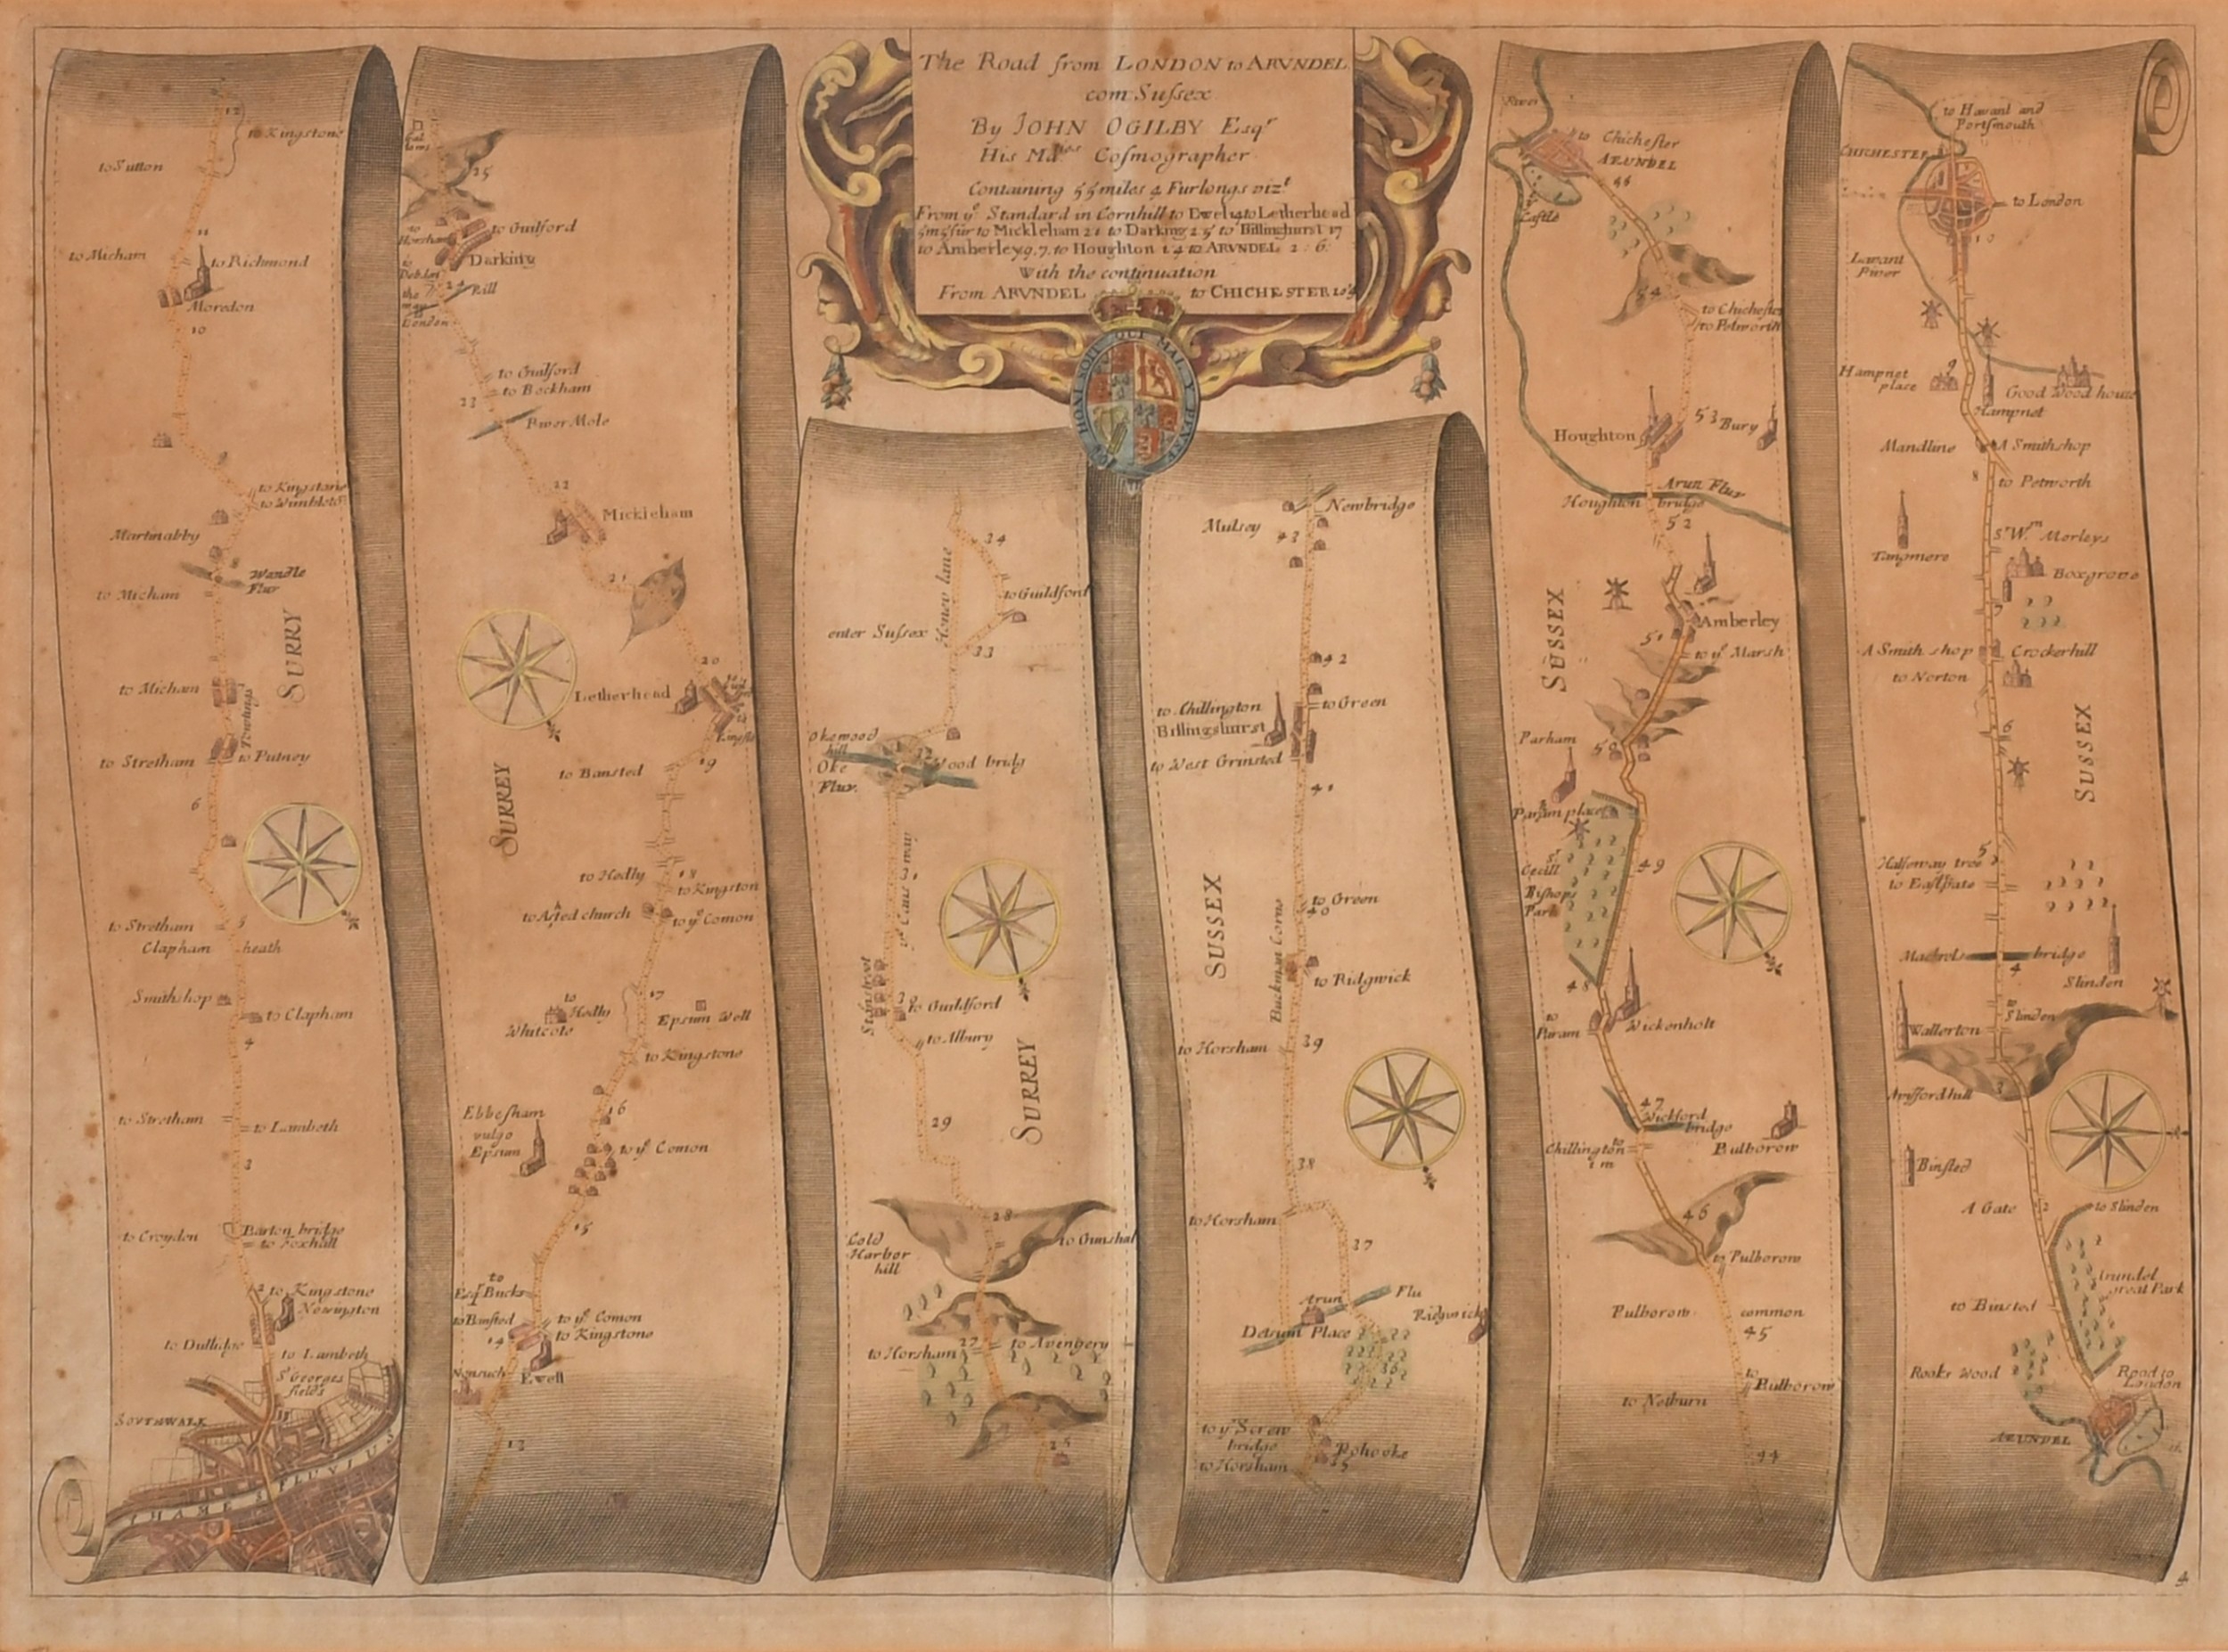 The Road from LONDON to ARVNDEL
com: Sussex
By JOHN OGILBY Esqr
His Maties Cosmographer
Containing 55 miles 4 Furlongs vizt
From ye Standard in Cornhill to Ewel 14 to Letherhead
5m 5fur to Mickleham 21 to Darking 25 to Billinghurst 17
to Amberley 9.7. to Houghton 1.4 to ARVNDEL 2:6.
With the continuation
From ARVNDEL to CHICHESTER
HONI SOIT QUI MAL Y PENSE
12
to Kingstone
to Sutton
11
to Micham
to Richmond
Moredon
10
9
to Kingstone
to Wimbleto
Martinabby
Wandle
Fluv
to Micham
SURRY
to Micham
Towtings
to Stretham
to Putney
6
to Stretham
5
Clapham heath
Smith shop
to Clapham
4
to Stretham
to Lambeth
3
to Croydon
Barton bridge
to Foxhall
2
to Kingstone
Newington
to Dullidge
to Lambeth
St Georges
fields
SOUTHWALK
THAMESIS FLUVIUS
25
to
Horsham
to Guilford
Darking
24
Rill
the
way
London
to Guilford
to Bockham
23
River Mole
22
Mickleham
21
20
Letherhead
19
to Bansted
SURREY
to Hedly
18
to Kingston
to Ashed church
to ye Comon
17
to
Hedly
Whitcote
Epsum Well
to Kingstone
16
Ebbesham
vulgo
Epsum
to ye Comon
15
to
Esq Bucks
to Bansted
to ye Comon
14
to Kingstone
Nonsuch
Ewell
13
34
Honey lane
to Guildford
enter Sussex
33
Okewood
hill
Oke
Fluv.
32
Wood bridg
ye Causway
31
Stanstreet
30
to Guildford
to Albury
SURREY
29
28
Cold
Harbor
hill
to Gumshal
27
to Horsham
to Avengery
26
Newbridge
Mulsey
43
42
to Chillington
to Green
Billingshurst
to West Grinsted
41
SUSSEX
Buckman Corns
to Green
40
to Ridgwick
to Horsham
39
38
to Horsham
37
Arun Flu
Ridgwick
Detsum Place
36
to ye Screw
bridge
to Horsham
Pohooke
35
River
to Chichester
ARUNDEL
55
Castle
54
to Chichester
to Petworth
53
Bury
Houghton
Arun Fluv
Houghton bridge
52
SUSSEX
Amberley
51
to ye Marsh
Parham
50
Param place
Sr
Cecill
Bishops
Park
49
48
to
Param
Wickenholt
47
Wickford
bridge
to
Chillington
1 m
Pulborow
46
to Pulborow
Pulborow common
45
to
Pulborow
to Notburn
44
to Havant and
Portsmouth
CHICHESTER
to London
10
Lavant
River
9
Hampnet
place
Good Wood house
Hampnet
Mandline
A Smith shop
8
to Petworth
Tangmere
Sr Wm Morleys
Boxgrove
7
A Smith shop
Crockerhill
to Norton
6
SUSSEX
5
Halfeway tree
to Eastgate
Mackrels bridge
4
Slinden
to
Slinden
Wallerton
3
Avisford hill
Binsted
A Gate
2
to Slinden
Arundel
great Park
to Binsted
Rooks Wood
Road to
London
ARUNDEL
4